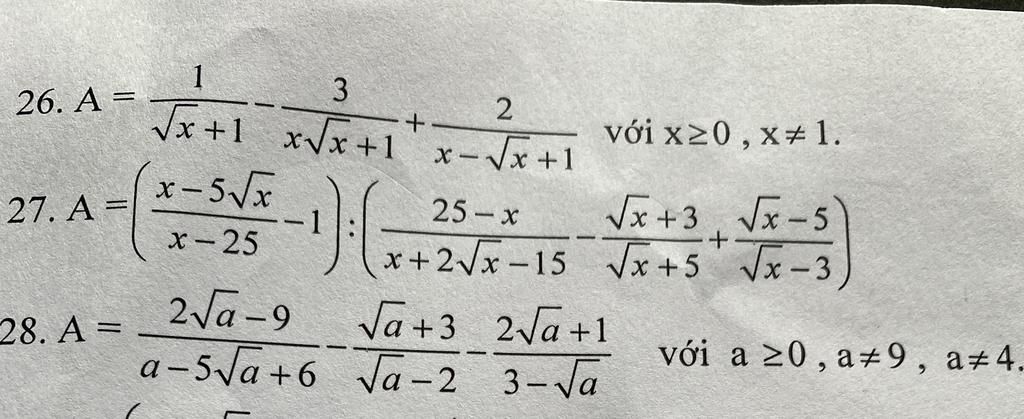 26. A = 1/(√x+1) − 3/(x√x+1) + 2/(x−√x+1) với x≥0 , x≠1.
27. A = ((x−5√x)/(x−25) − 1) : ((25−x)/(x+2√x−15) − (√x+3)/(√x+5) + (√x−5)/(√x−3))
28. A = (2√a−9)/(a−5√a+6) − (√a+3)/(√a−2) − (2√a+1)/(3−√a) với a ≥0 , a≠9 , a≠4.